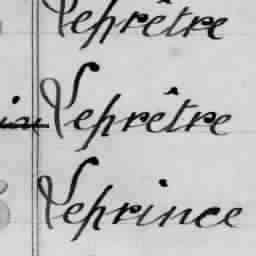 Leprêtre
Leprêtre
Leprince